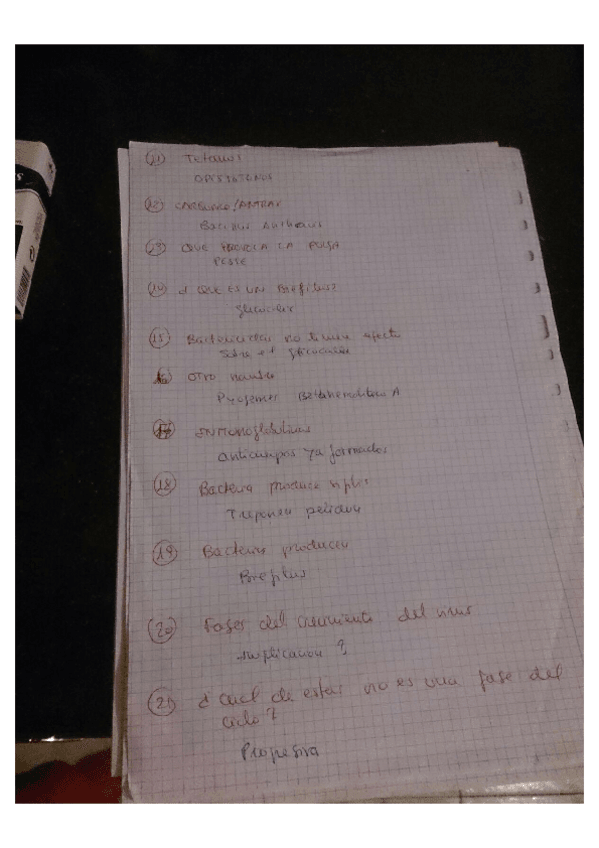 11) Tetanos
OPISTOTONOS
12) CARBUNCO/ANTRAX
Bacillus Anthracis
13) QUE PROVOCA LA PULGA
PESTE
14) ¿ QUE ES UN Biofilms
glicocalix
15) Bactericidas no tienen efecto
sobre el glicocalix
16) OTRO nombre
Pyogenes Betahemolitico A
17) INMUNOglobulinas
anticuerpos ya formados
18) Bacteria produce sifilis
Treponema
19) Bacterias producen
20) Fases del crecimiento del virus
?
21) ¿ Cual de estas no es una fase del
ciclo ?